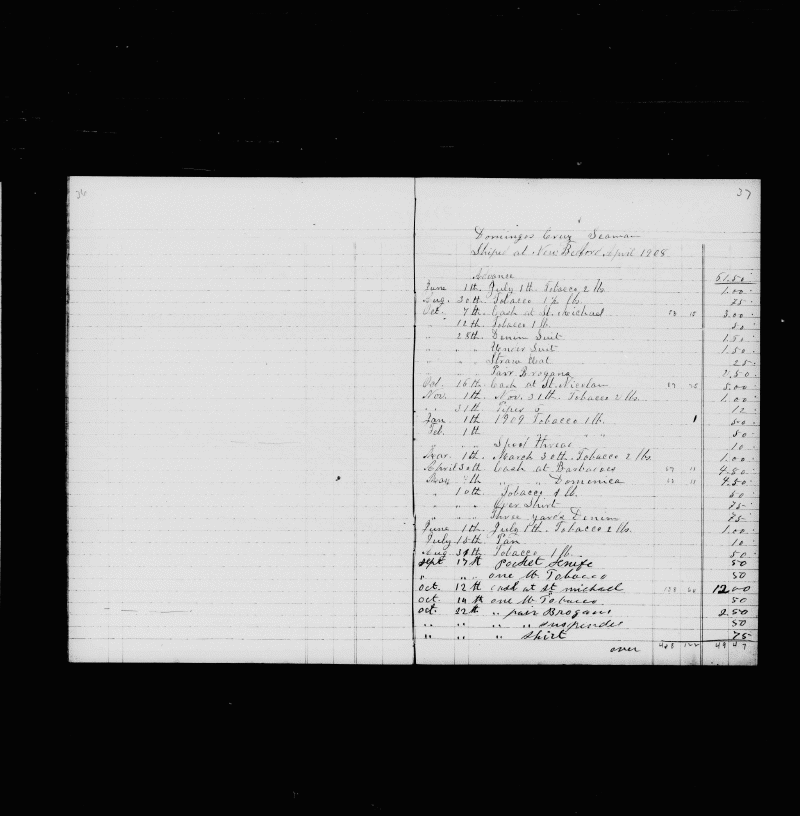 36
37
Domingos Cruz Seaman
Shiped at New Beford April 1908
Advance 61.50
June 1th. July 1th. Tobacco 2 lbs. 1.00
Aug. 30th. Tobacco 1½ lbs. 75
Oct. 7th. Cash at St. Michael 3.00
" 12th. Tobacco 1 lb. 50
" 28th. Denim Suit 1.50
" " " Under Suit 1.50
" " " Straw Hat 25
" " " Parr Brogans 2.50
Oct. 16th Cash at St. Nicolau 5.00
Nov. 1th. Nov. 31th. Tobacco 2 lbs. 1.00
" 31th. Pipes 5 12
Jan. 1th 1909 Tobacco 1 lb. 50
Feb. 1th " " 50
" " Spool Thread 10
Mar. 1th. March 30th. Tobacco 2 lbs. 1.00
April 30th Cash at Barbadoes 4.50
May th. " " Domenica 4.50
" 10th. Tobacco 1 lb. 50
" " " Over Shirt 75
" " " Three yards Denim 75
June 1th. July 1th. Tobacco 2 lbs. 1.00
July 15th. Pan 10
Aug 31th Tobacco 1 lb. 50
Sept 17th Pocket Knife 50
" " " one lb. Tobacco 50
Oct. 12th cash at st michael 12.00
Oct. 14th one lb. Tobacco 50
Oct. 22th. " pair Brogans 2.50
" " " " suspender 50
" " " shirt 75
over